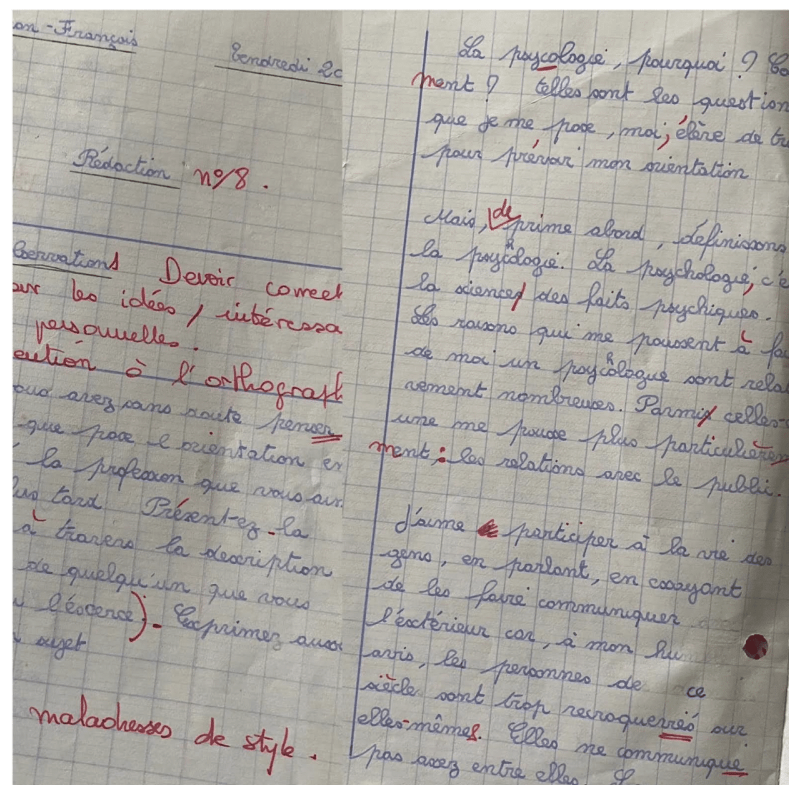 on-Français
Vendredi 20
Rédaction n°8.
bservations Devoir correct
sur les idées, intéressa
personnelles.
ention à l'orthograph
ous avez sans doute penser
que pose l'orientation en
la profession que vous
lus tard Présentez-la
à travers la description
de quelqu'un que vous
l'exerce). Exprimez aussi
sujet
maladresses de style.
La psycologie, pourquoi ? Co
ment ? telles sont les question
que je me pose, moi, élève de
pour prévoir mon orientation
Mais, de prime abord, définissons
la psychologie. La psychologie, c'e
la science des faits psychiques.
Les raisons qui me poussent à fai
de moi un psychologue sont rela
vement nombreuses. Parmi celles-
une me pousse plus particulière
ment : les relations avec le public.
J'aime participer à la vie des
gens, en parlant, en essayant
de les faire communiquer
l'extérieur car, à mon hu
avis, les personnes de ce
siècle sont trop recroquevrés sur
elles-mêmes. Elles ne communique
pas assez entre elles.